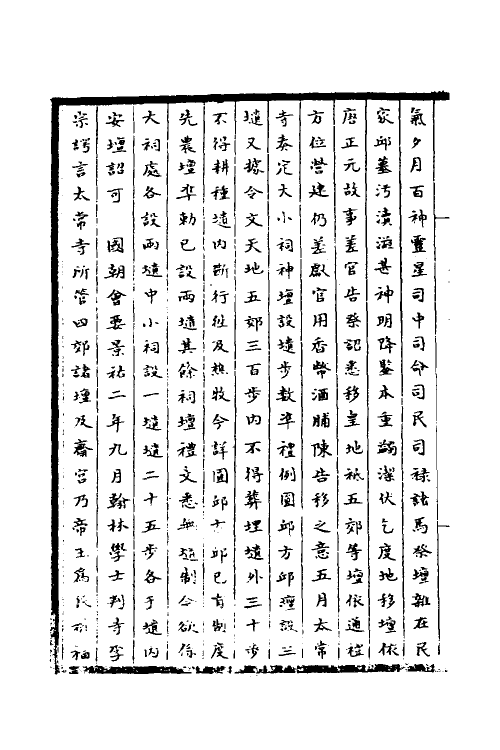 氣夕月百神靈星司中司命司民司祿諸馬祭壇雜在民
家邱墓汚瀆滋甚神明降鑒本重蠲潔伏乞度地移壇依
唐正元故事差官告祭詔悉移皇地祇五郊等壇依通禮
方位營建仍差獻官用香幣酒脯陳告移之意五月太常
寺奏定大小祠神壇設壝步數準禮例圜邱方邱壇設三
壝又據令文天地五郊三百步內不得葬埋壝外三十步
不得耕種壝內斷行徃及熱牧今詳圜邱方邱已有制度
先農壇準勅已設兩壝其餘祠壇禮文悉無壝制今欲係
大祠處各設兩壝中小祠設一壝壝二十五步各于壝內
安壇詔可 國朝會要景祐二年九月翰林學士判寺李
宗諤言太常寺所管四郊諸壇及齋宮乃帝王爲民祈福